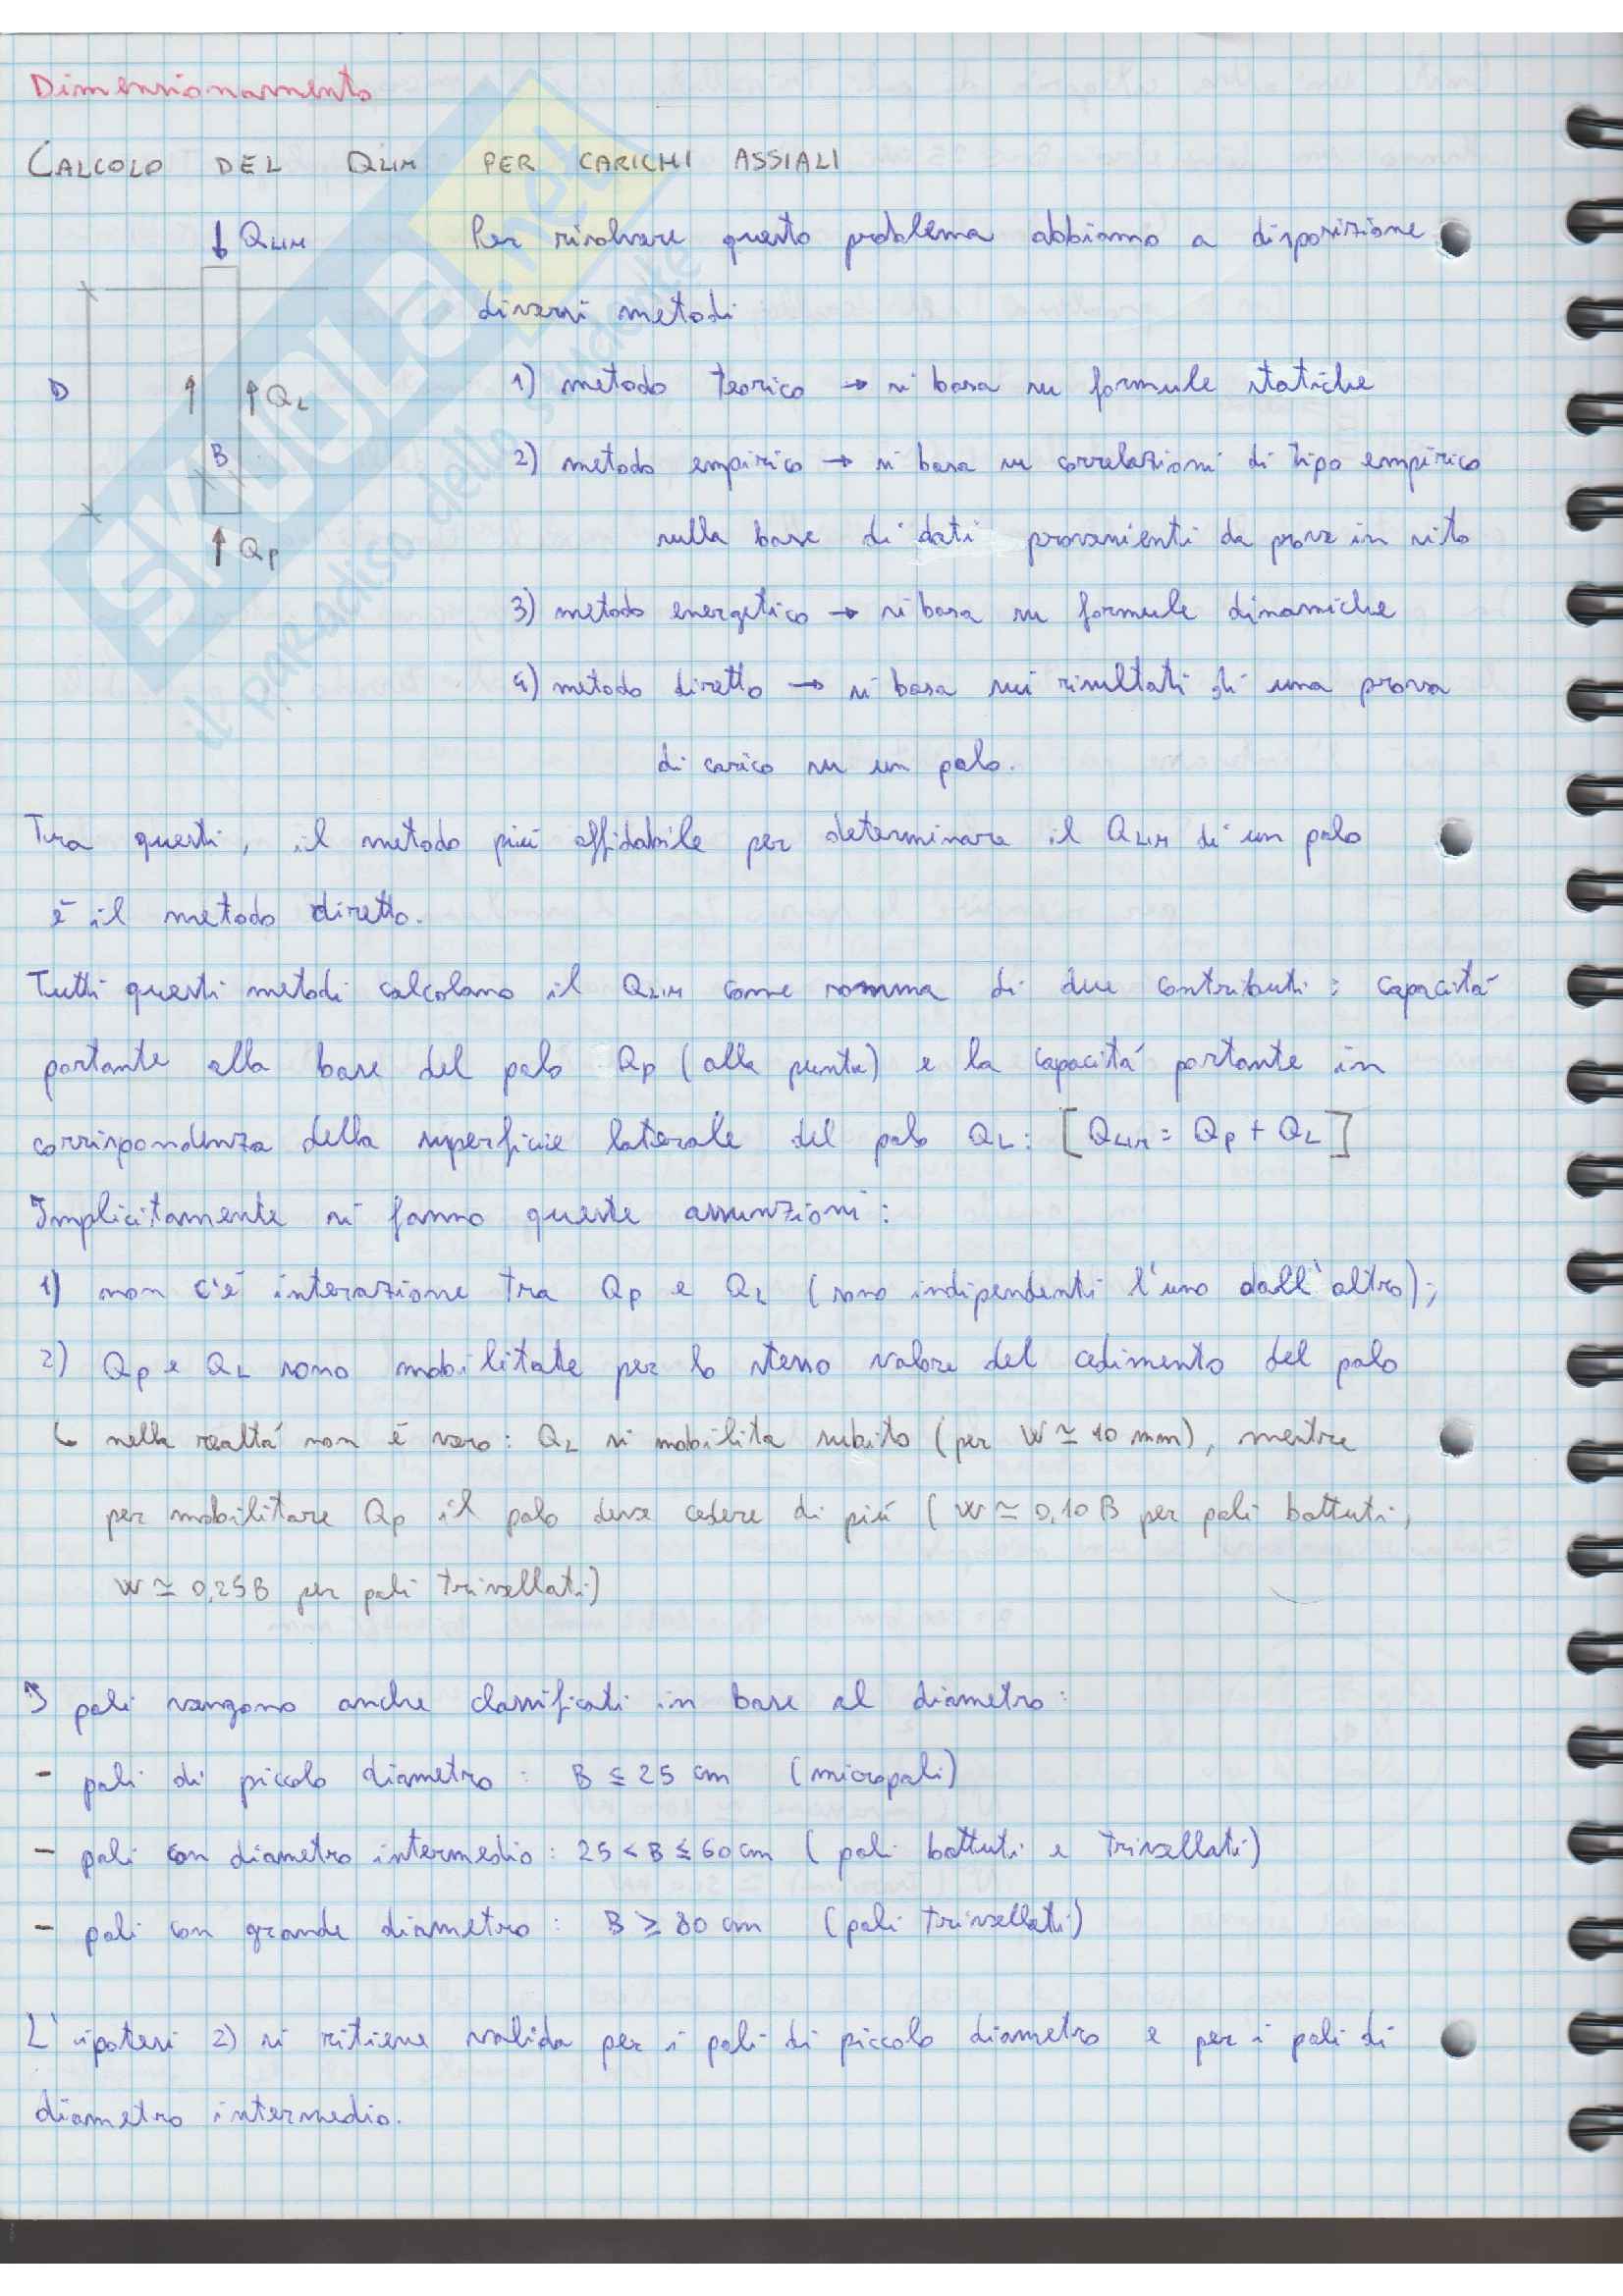 Dimensionamento
CALCOLO DEL QLIM PER CARICHI ASSIALI
QLIM
Per risolvere questo problema abbiamo a disposizione
diversi metodi
D
QL
1) metodo teorico → si basa su formule statiche
B
2) metodo empirico → si basa su correlazioni di tipo empirico
sulla base di dati provenienti da prove in sito
QP
3) metodo energetico → si basa su formule dinamiche
4) metodo diretto → si basa sui risultati di una prova
di carico su un palo.
Tra questi, il metodo più affidabile per determinare il QLIM di un palo
è il metodo diretto.
Tutti questi metodi calcolano il QLIM come somma di due contributi: capacità
portante alla base del palo QP (alla punta) e la capacità portante in
corrispondenza della superficie laterale del palo QL: [QLIM = QP + QL]
Implicitamente si fanno queste assunzioni:
1) non c'è interazione tra QP e QL (sono indipendenti l'uno dall'altro);
2) QP e QL sono mobilitate per lo stesso valore del cedimento del palo
↳ nella realtà non è vero: QL si mobilita subito (per W ≃ 10 mm), mentre
per mobilitare QP il palo deve cedere di più (W ≃ 0,10 B per pali battuti,
W ≃ 0,25B per pali trivellati)
I pali vengono anche classificati in base al diametro:
- pali di piccolo diametro: B ≤ 25 cm (micropali)
- pali con diametro intermedio: 25 < B ≤ 60 cm (pali battuti e trivellati)
- pali con grande diametro: B ≥ 80 cm (pali trivellati)
L'ipotesi 2) si ritiene valida per i pali di piccolo diametro e per i pali di
diametro intermedio.
SKUOLA.net
il paradiso dello studente